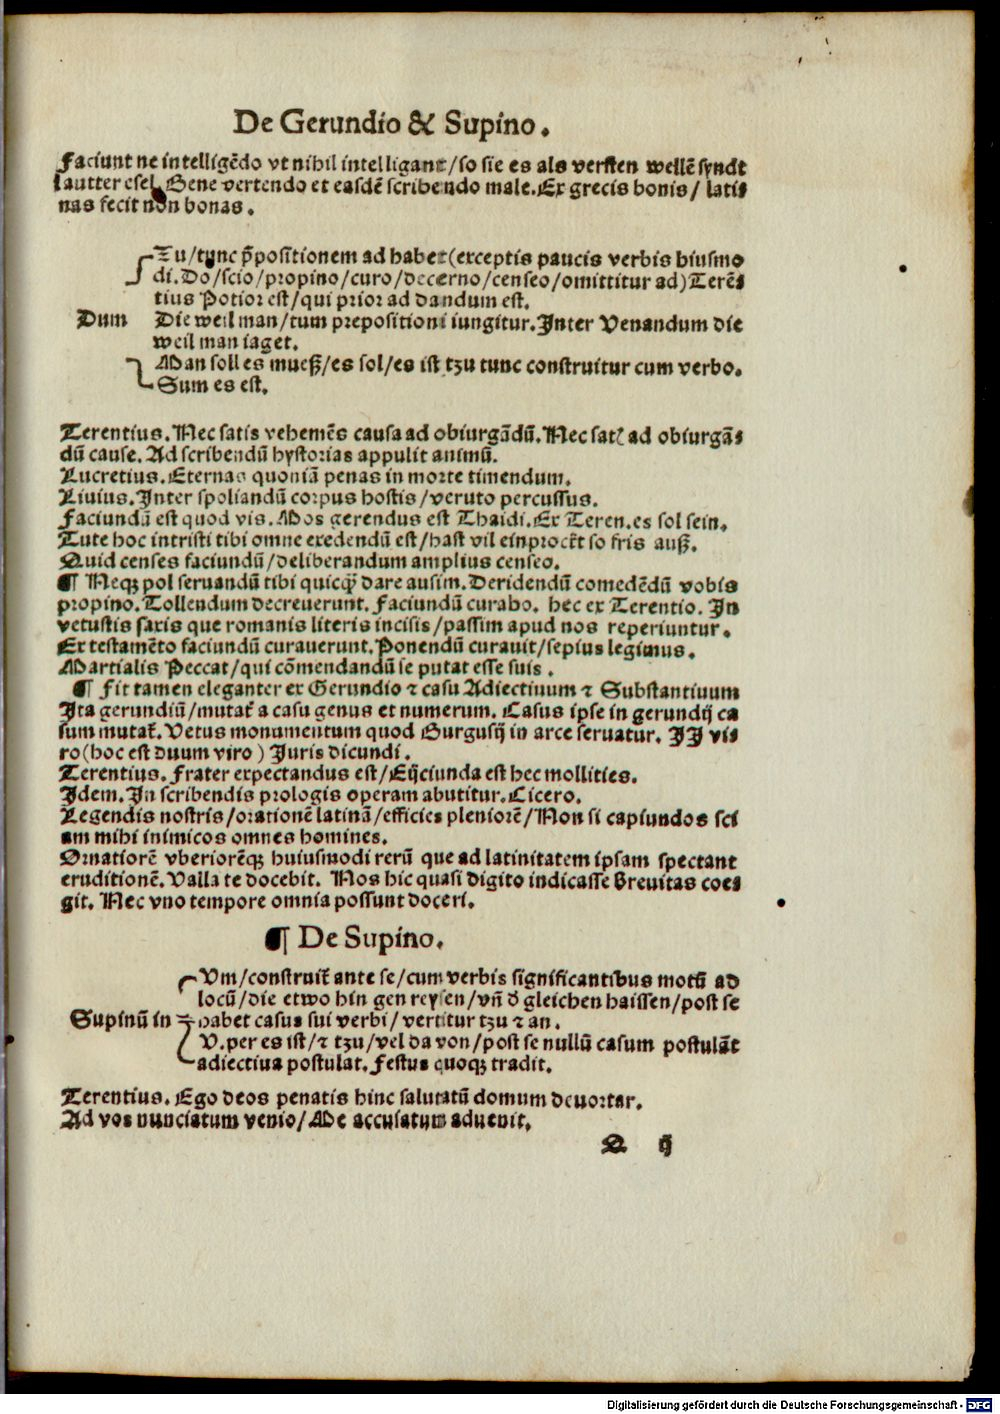 De Gerundio & Supino.
Faciunt ne intelligēdo vt nihil intelligant/so sie es als versten wellē syndt
lautter esel. Bene vertendo et easdē scribendo male. Ex grecis bonis/ lati⸗
nas fecit non bonas.
Tzu/tunc p̄positionem ad habet(exceptis paucis verbis hiusmo
di. Do/scio/propino/curo/decerno/censeo/omittitur ad)Terē⸗
tius Potior est/qui prior ad dandum est.
Dum Die weil man/tum prepositioni iungitur. Inter Venandum die
weil man iaget.
Man soll es mueß/es sol/es ist tzu tunc construitur cum verbo.
Sum es est.
Terentius. Nec satis vehemēs causa ad obiurgādū. Nec satꝭ ad obiurgā⸗
dū cause. Ad scribendū hystorias appulit animū.
Lucretius. Eternas quoniā penas in morte timendum.
Liuius. Inter spoliandū corpus hostis/veruto percussus.
Faciundū est quod vis. Mos gerendus est Thaidi. Ex Teren. es sol sein.
Tute hoc intristi tibi omne exedendū est/hast vil einprockt so fris auß.
Quid censes faciundū/deliberandum amplius censeo.
¶ Neqꝫ pol seruandū tibi quicqꝫ dare ausim. Deridendū comedēdū vobis
propino. Tollendum decreuerunt. Faciundū curabo. hec ex Terentio. In
vetustis saxis que romanis literis incisis/passim apud nos reperiuntur.
Ex testamēto faciundū curauerunt. Ponendū curauit/sepius legimus.
Martialis Peccat/qui cōmendandū se putat esse suis.
¶ Fit tamen eleganter ex Gerundio ⁊ casu Adiectiuum ⁊ Substantiuum
Ita gerundiū/mutat̄ a casu genus et numerum. Casus ipse in gerundij ca
sum mutat̄. Vetus monumentum quod Gurgusij in arce seruatur. II vi⸗
ro(hoc est duum viro) Iuris dicundi.
Terentius. Frater expectandus est/Eijciunda est hec mollities.
Idem. In scribendis prologis operam abutitur. Cicero.
Legendis nostris/orationē latinā/efficies pleniorē/Non si capiundos sci
am mihi inimicos omnes homines.
Ornatiorē vberiorēqꝫ huiusmodi rerū que ad latinitatem ipsam spectant
eruditionē. Valla te docebit. Nos hic quasi digito indicasse breuitas coe⸗
git. Nec vno tempore omnia possunt doceri.
¶ De Supino.
Vm/construit̄ ante se/cum verbis significantibus motū ad
locū/die etwo hin gen reysen/vn̄ d̕ gleichen haissen/post se
Supinū in habet casus sui verbi/vertitur tzu ⁊ an.
V. per es ist/⁊ tzu/vel da von/post se nullū casum postulāt
adiectiua postulat. Festus quoqꝫ tradit.
Terentius. Ego deos penatis hinc salutatū domum deuortar.
Ad vos nunciatum venio/Me accusatum aduenit.
Q ij
Digitalisierung gefördert durch die Deutsche Forschungsgemeinschaft - DFG